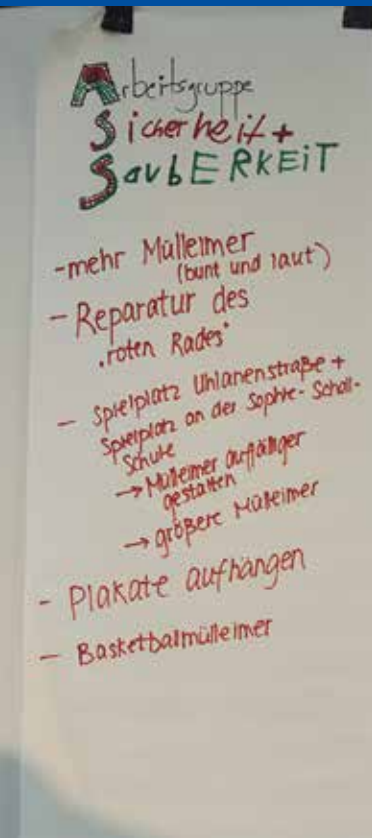 Arbeitsgruppe
Sicherheit +
SaubERKEiT
- mehr Mülleimer
(bunt und laut)
- Reparatur des
"roten Rades"
- Spielplatz Uhlanenstraße +
Spielplatz an der Sophie-Scholl-
Schule
→ Mülleimer auffälliger
gestalten
→ größere Mülleimer
- Plakate aufhängen
- Basketballmülleimer